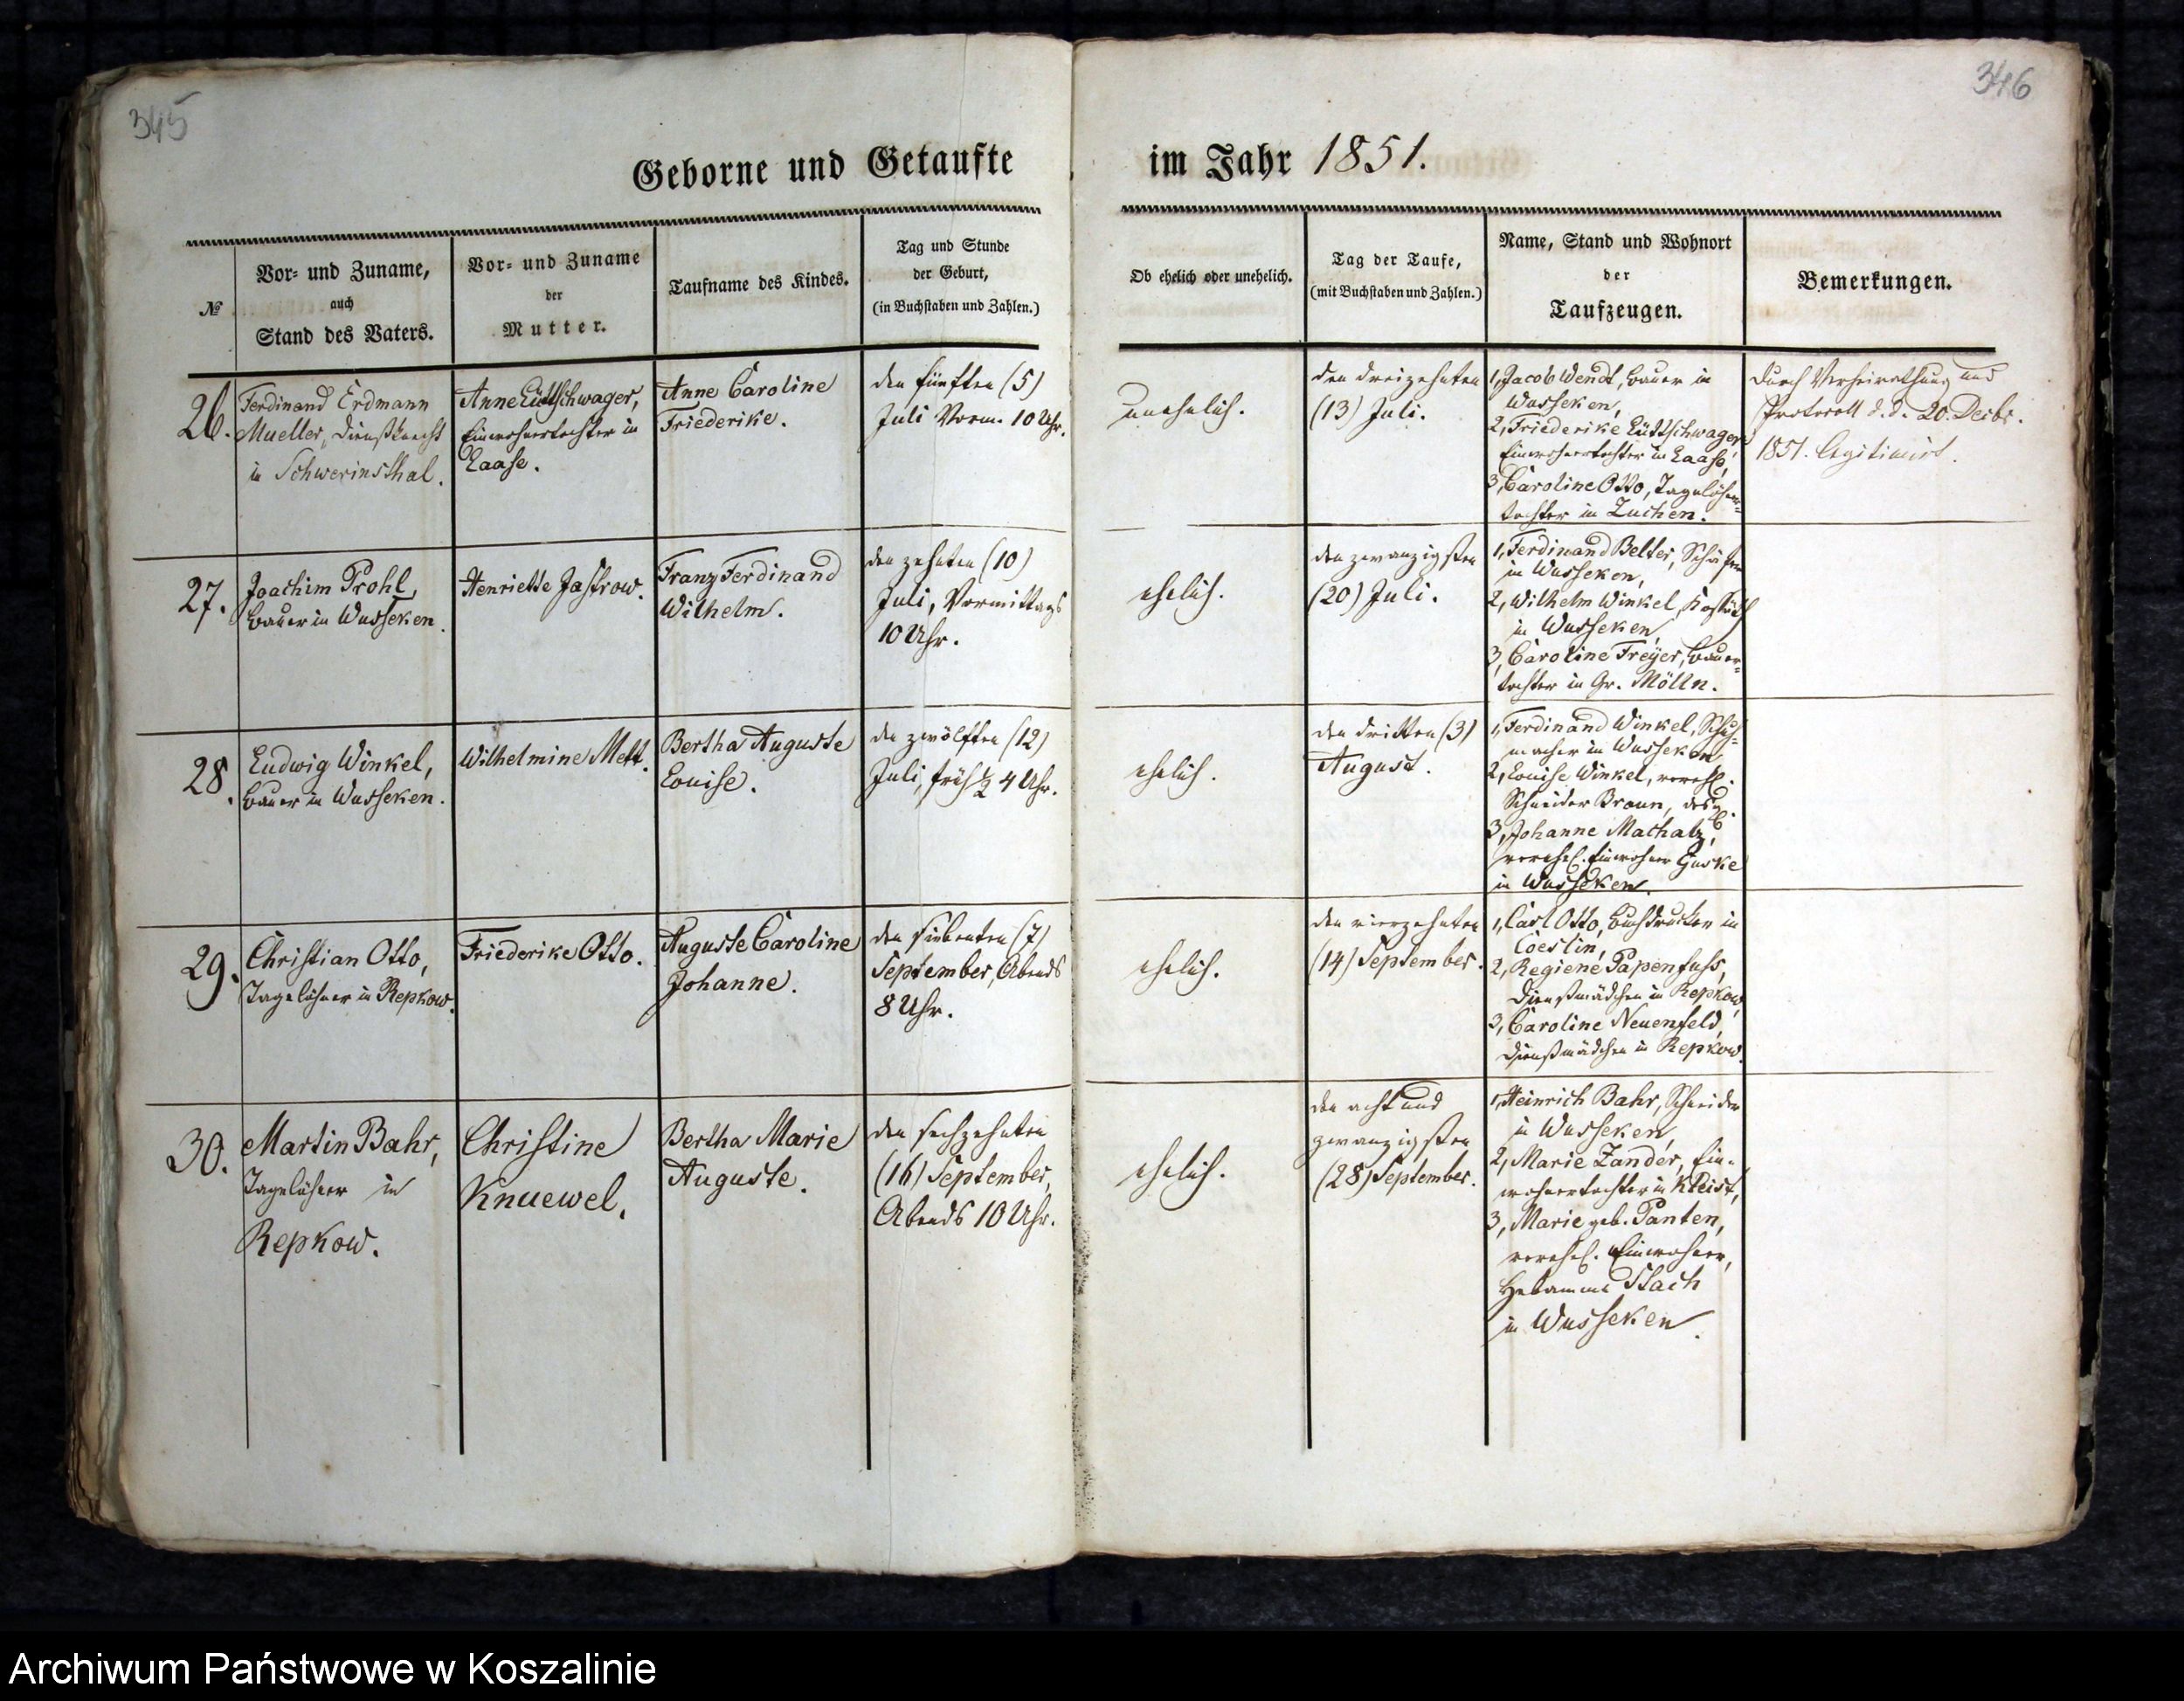 345
346
Geborne und Getaufte
im Jahr 1851.
№
Vor- und Zuname,
auch
Stand des Vaters.
Vor- und Zuname
der
Mutter.
Taufname des Kindes.
Tag und Stunde
der Geburt,
(in Buchstaben und Zahlen.)
Ob ehelich oder unehelich.
Tag der Taufe,
(mit Buchstaben und Zahlen.)
Name, Stand und Wohnort
der
Taufzeugen.
Bemerkungen.
26.
Ferdinand Erdmann
Mueller, Dienstknecht
in Schwerinsthal.
Anne Lüttschwager,
Einwohnertochter in
Laase.
Anne Caroline
Friederike.
den fünften (5)
Juli Vorm. 10 Uhr.
unehelich.
den dreizehnten
(13) Juli.
1, Jacob Wendt, Bauer in
Wusseken,
2, Friederike Lüttschwager,
Einwohnertochter in Laase,
3, Caroline Otto, Tagelöhner-
tochter in Zuchen.
Durch Verheirathung und
Protocoll d. d. 20. Decbr.
1851. legitimirt.
27.
Joachim Prohl,
Bauer in Wusseken.
Henriette Jastrow.
Franz Ferdinand
Wilhelm.
den zehnten (10)
Juli, Vormittags
10 Uhr.
ehelich.
den zwanzigsten
(20) Juli.
1, Ferdinand Belter, Schäfer
in Wusseken,
2, Wilhelm Winkel, Kossäth
in Wusseken,
3, Caroline Freyer, Bauer-
tochter in Gr. Mölln.
28.
Ludwig Winkel,
Bauer in Wusseken.
Wilhelmine Mett.
Bertha Auguste
Louise.
den zwölften (12)
Juli, früh ½ 4 Uhr.
ehelich.
den dritten (3)
August.
1, Ferdinand Winkel, Schuh-
macher in Wusseken,
2, Louise Winkel, verehl.
Schneider Braun, desgl.
3, Johanne Mathalz,
verehel. Einwohner Guske
in Wusseken.
29.
Christian Otto,
Tagelöhner in Repkow.
Friederike Otto.
Auguste Caroline
Johanne.
den siebenten (7)
September, Abends
8 Uhr.
ehelich.
den vierzehnten
(14) September.
1, Carl Otto, Buchdrucker in
Coeslin,
2, Regiene Papenfuss,
Dienstmädchen in Repkow,
3, Caroline Neuenfeld,
Dienstmädchen in Repkow.
30.
Martin Bahr,
Tagelöhner in
Repkow.
Christine
Knuewel.
Bertha Marie
Auguste.
den sechzehnten
(16) September,
Abends 10 Uhr.
ehelich.
den acht und
zwanzigsten
(28) September.
1, Heinrich Bahr, Schneider
in Wusseken,
2, Marie Zander, Ein-
wohnertochter in Kleist,
3, Marie geb. Panten,
verehel. Einwohner,
Hebamme Stach
in Wusseken.
Archiwum Państwowe w Koszalinie